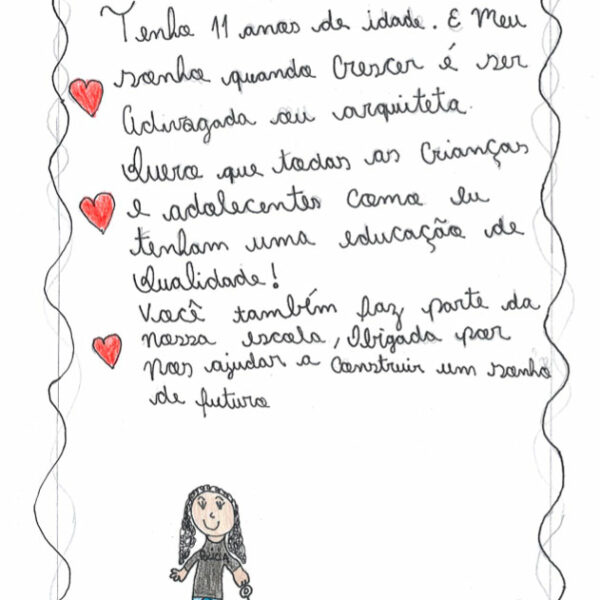 Tenho 11 anos de idade. E Meu
sonho quando Crescer é ser
Adivogada ou arquiteta.
Quero que todas as Crianças
e adolecentes como eu
tenham uma educação de
Qualidade!
Você também faz parte da
nossa escola, Obigada por
nos ajudar a Construir um sonho
de futuro